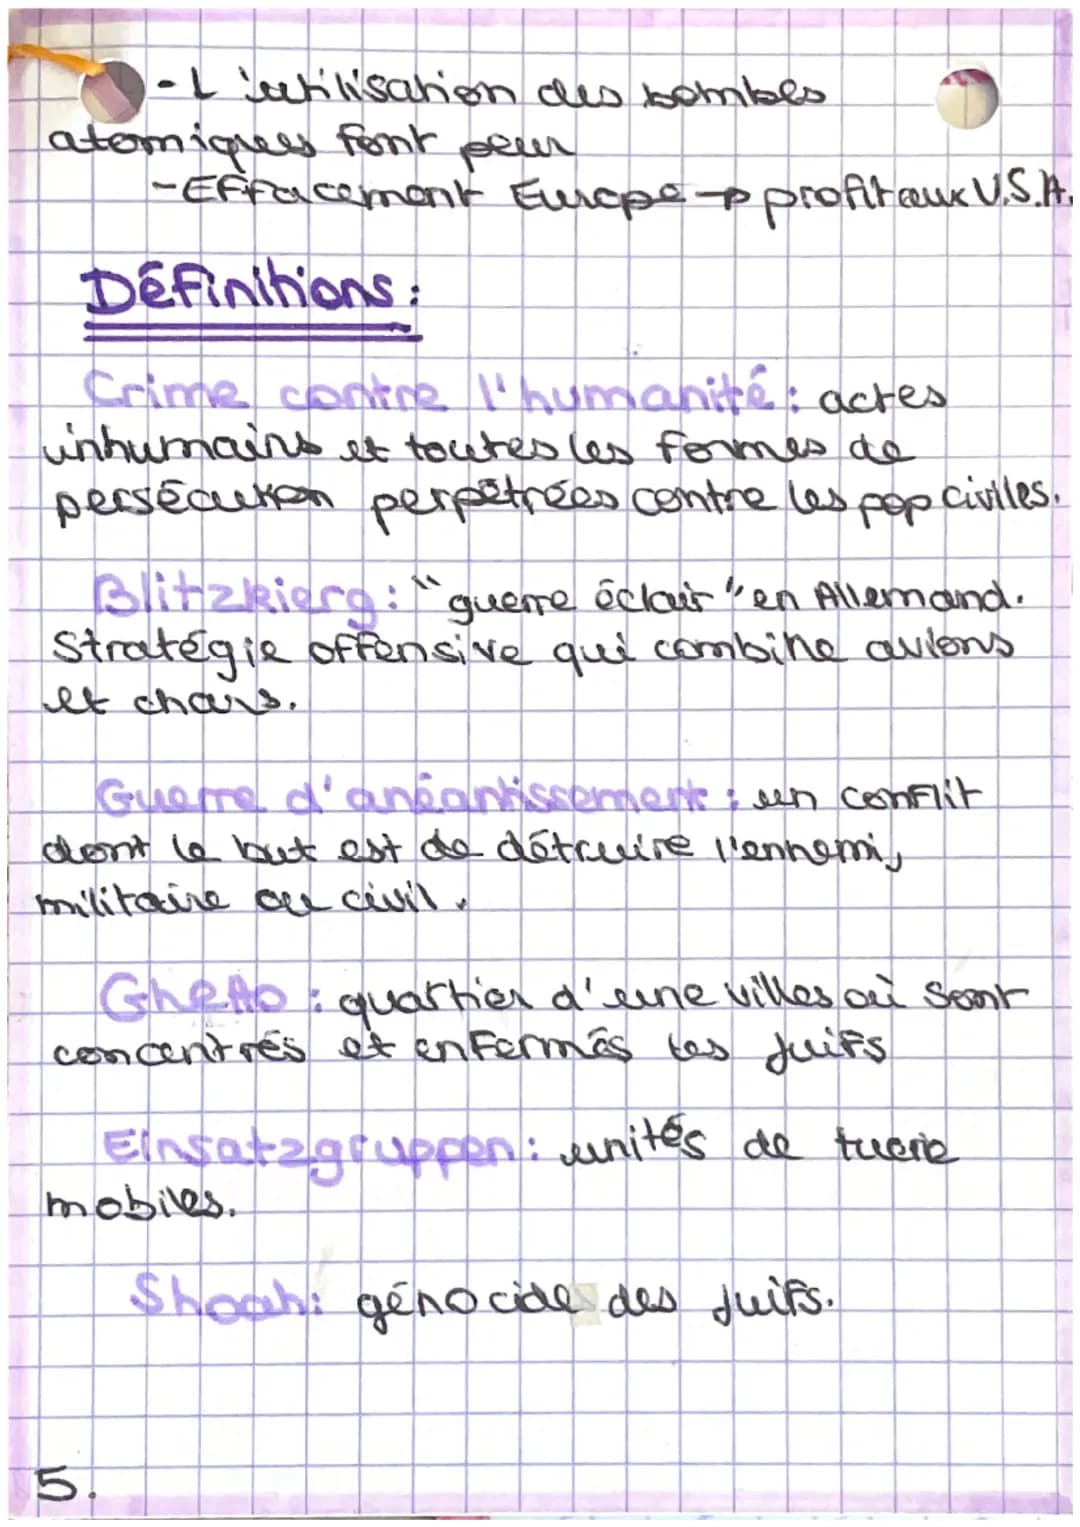 - L'utilisation des bombes
atomiques font peur
- Effacement Europe → profit aux U.S.A.
Définitions :
Crime contre l'humanité : actes
inhumains et toutes les formes de
persécution perpétrées contre les pop civiles.
Blitzkierg : "guerre éclair" en Allemand.
Stratégie offensive qui combine avions
et chars.
Guerre d'anéantissement : un conflit
dont le but est de détruire l'ennemi,
militaire ou civil.
Ghetto : quartier d'une villes où sont
concentrés et enfermés les juifs
Einsatzgruppen : unités de tuerie
mobiles.
Shoah : génocide des juifs.
5.